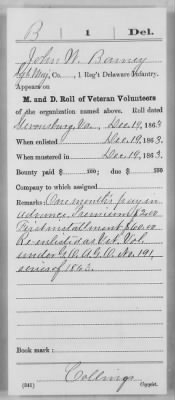 B | 1 | Del.
John W. Barney
Sgt. Maj., Co. , 1 Reg't Delaware Infantry.
Appears on
M. and D. Roll of Veteran Volunteers
of the organization named above. Roll dated
Stevensburg, Va., Dec. 19, 1863
When enlisted Dec. 19, 1863.
When mustered in Dec. 19, 1863.
Bounty paid $ 100; due $ 100
Company to which assigned
Remarks: One month's pay in
advance Premium $2.00
First installment $60.00
Re enlisted as Vet. Vol.
under G.O. A.G.O. No. 191,
series of 1863.
Book mark:
Collings
(341) Copyist.